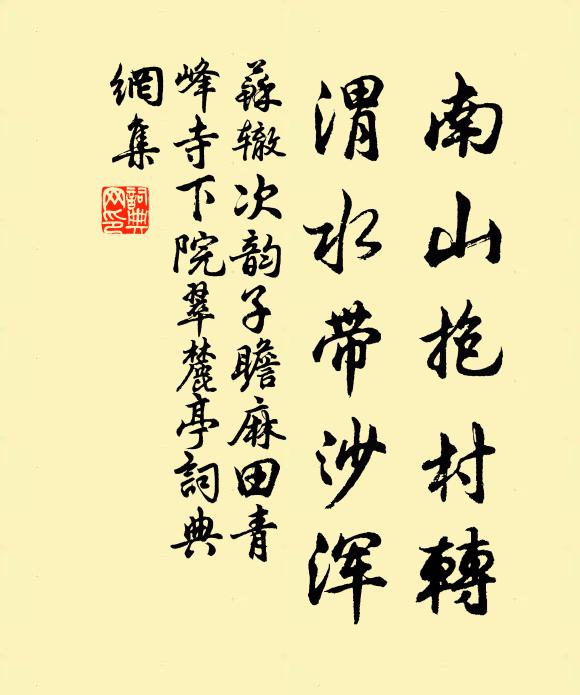 南山抱村轉
渭水帶沙渾
蘇辙次韵子瞻麻田青
峰寺下院翠麓亭詞典
網集
詞典
网印